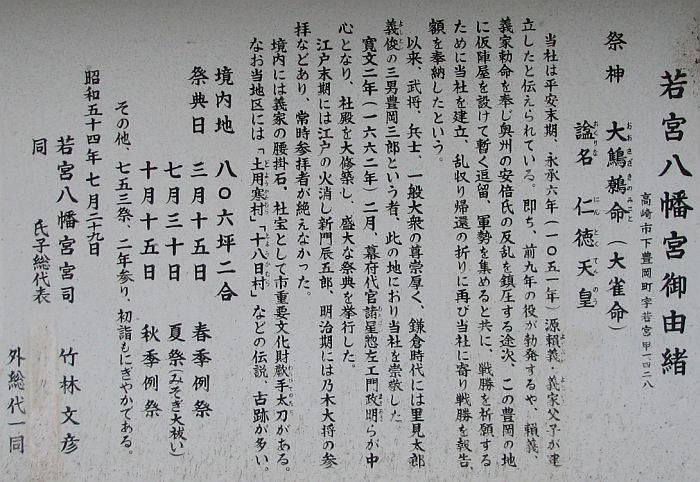 若宮八幡宮御由緒
高崎市下豊岡町字若宮甲一四二八
祭神　大鷦鷯命（大雀命）
おおさざきのみこと
諡名　仁徳天皇
おくりな　にんとくてんのう
当社は平安末期、永承六年（一〇五一年）源頼義・義家父子が建
立したと伝えられている。即ち、前九年の役が勃発するや、頼義、
義家勅命を奉じ奥州の安倍氏の反乱を鎮圧する途次、この豊岡の地
に仮陣屋を設けて暫く逗留、軍勢を集めると共に、戦勝を祈願する
ために当社を建立、乱収り帰還の折りに再び当社に寄り戦勝を報告、
額を奉納したという。
以来、武将、兵士、一般大衆の尊崇厚く、鎌倉時代には里見太郎
義俊の三男豊岡三郎という者、此の地におり当社を崇敬した。
よしとし
寛文二年（一六六二年）二月、幕府代官諸星惣左エ門政明らが中
心となり、社殿を大修築し、盛大な祭典を挙行した。
江戸末期には江戸の火消し新門辰五郎、明治期には乃木大将の参
拝などあり、常時参拝者が絶えなかった。
境内には義家の腰掛石、社宝として市重要文化財歌手太刀がある。
なお当地区には「土用寒村」「十八日村」などの伝説、古跡が多い。
境内地　八〇六坪二合
祭典日　三月十五日　春季例祭
七月三十日　夏祭（みそぎ大祓い）
十月十五日　秋季例祭
その他、七五三祭、二年参り、初詣もにぎやかである。
昭和五十四年七月二十九日
若宮八幡宮宮司　竹林文彦
同　氏子総代表　〃
外総代一同